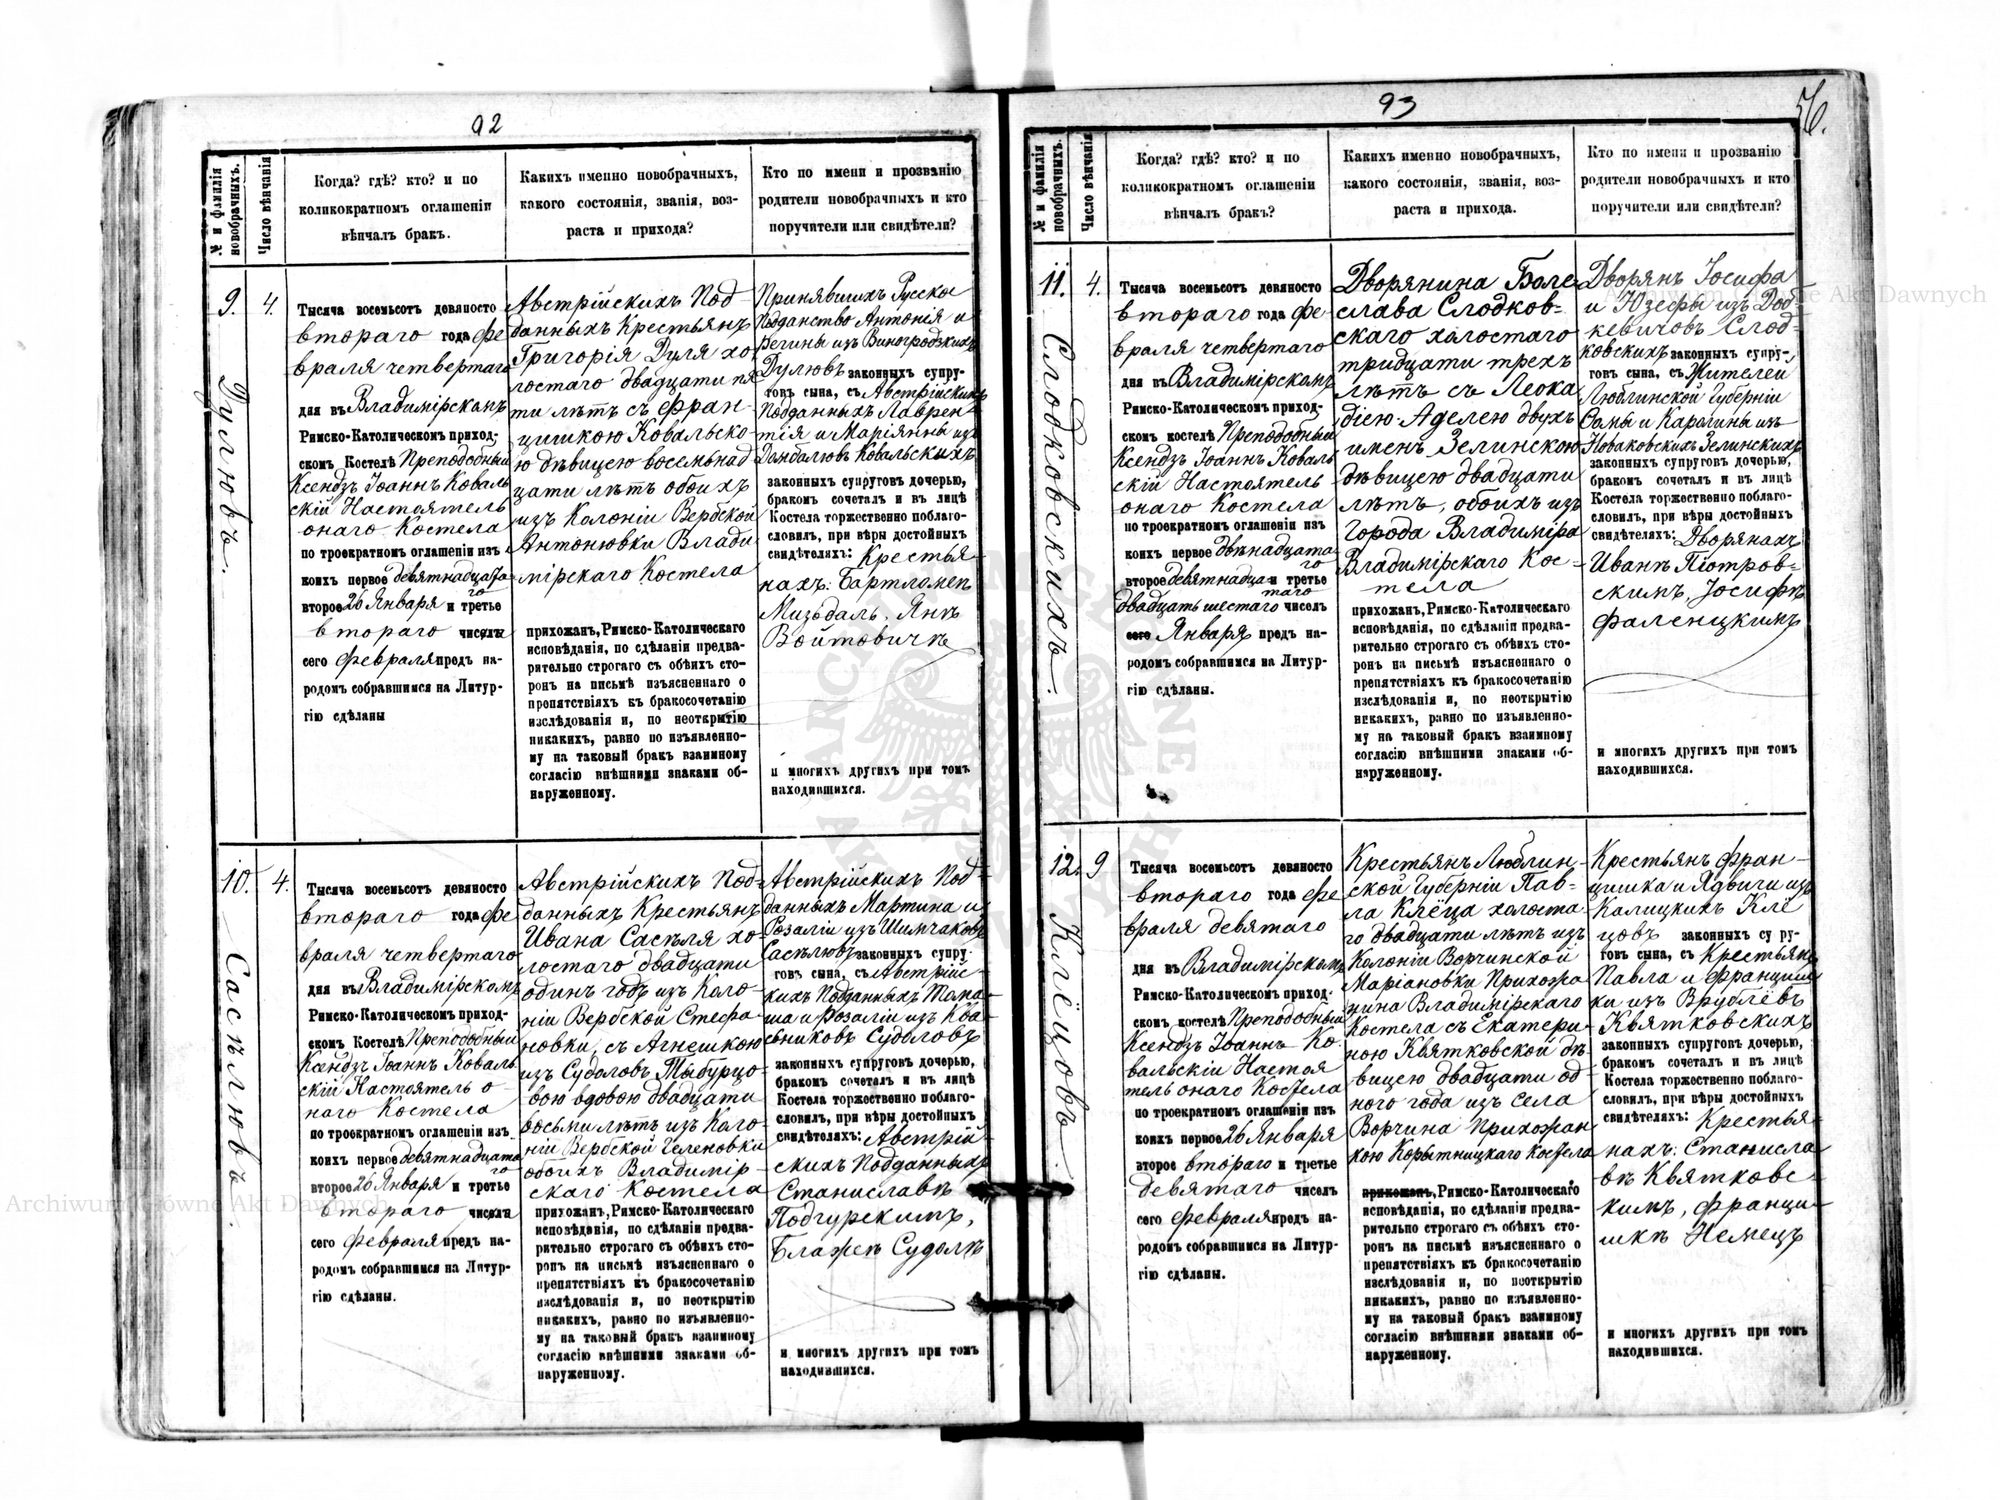 92
№ и фамилія новобрачныхъ.
Число вѣнчанія
Когда? гдѣ? кто? и по
коликократномъ оглашеніи
вѣнчалъ бракъ.
Какихъ именно новобрачныхъ,
какого состоянія, званія, воз-
раста и прихода?
Кто по имени и прозванію
родители новобрачныхъ и кто
поручители или свидѣтели?
9.
Дулювъ.
4.
Тысяча восемьсотъ девяносто
втораго года фе
враля четвертаго
дня въ Владимірскомъ
Римско-Католическомъ приход-
скомъ Костелѣ Преподобный
Ксендзъ Іоаннъ Коваль
скій Настоятель
онаго Костела
по троекратномъ оглашеніи изъ
коихъ первое девятнадцата
го
второе 26 Января и третье
втораго числъ
сего февраля предъ на-
родомъ собравшимся на Литур-
гію сдѣланы
Австрійскихъ Под-
данныхъ Крестьянъ
Григорія Дуля хо-
лостаго двадцати пя
ти лѣтъ съ Фран-
цишкою Ковальско
ю дѣвицею восемьнад
цати лѣтъ обоихъ
изъ Колоніи Вербской
Антонювки Влади
мірскаго Костела
прихожан, Римско-Католическаго
исповѣданія, по сдѣланіи предва-
рительно строгаго съ обѣихъ сто-
ронъ на письмѣ изъясненнаго о
препятствіяхъ къ бракосочетанію
изслѣдованія и, по неоткрытію
никакихъ, равно по изъявленно-
му на таковый бракъ взаимному
согласію внѣшними знаками об-
наруженному.
Принявшихъ Русское
Подданство Антонія и
Регины изъ Виногродзкихъ
Дулювъ законныхъ супру-
говъ сына, съ Австрійскихъ
Подданныхъ Лаврен-
тія и Маріянны изъ
Домбалювъ Ковальскихъ
законныхъ супруговъ дочерью,
бракомъ сочеталъ и въ лицѣ
Костела торжественно поблаго-
словилъ, при вѣры достойныхъ
свидѣтеляхъ: Крестья-
нахъ: Бартломеѣ
Миздаль, Янѣ
Войтовичѣ
и многихъ другихъ при томъ
находившихся.
10.
Сасѣлювъ.
4.
Тысяча восемьсотъ девяносто
втораго года фе
враля четвертаго
дня въ Владимірскомъ
Римско-Католическомъ приход-
скомъ Костелѣ Преподобный
Ксендзъ Іоаннъ Коваль
скій Настоятель о-
наго Костела
по троекратномъ оглашеніи изъ
коихъ первое девятнадцата
го
второе 26 Января и третье
втораго числъ
сего февраля предъ на-
родомъ собравшимся на Литур-
гію сдѣланы.
Австрійскихъ Под-
данныхъ Крестьянъ
Ивана Сасѣля хо-
лостаго двадцати
одинъ годъ изъ Коло-
ніи Вербской Стефа-
новки, съ Агнешкою
изъ Судоловъ Тыбурцо-
вою вдовою двадцати
восьми лѣтъ изъ Коло-
ніи Вербской Геленовки
обоихъ Владимір-
скаго Костела
прихожан, Римско-Католическаго
исповѣданія, по сдѣланіи предва-
рительно строгаго съ обѣихъ сто-
ронъ на письмѣ изъясненнаго о
препятствіяхъ къ бракосочетанію
изслѣдованія и, по неоткрытію
никакихъ, равно по изъявленно-
му на таковый бракъ взаимному
согласію внѣшними знаками об-
наруженному.
Австрійскихъ Под-
данныхъ Мартина и
Розаліи изъ Шимчаковъ
Сасѣлювъ законныхъ супру-
говъ сына, съ Австрійс-
кихъ Подданныхъ Тома-
ша и Розаліи изъ Ква
сьниковъ Судоловъ
законныхъ супруговъ дочерью,
бракомъ сочеталъ и въ лицѣ
Костела торжественно поблаго-
словилъ, при вѣры достойныхъ
свидѣтеляхъ: Австрій-
скихъ Подданныхъ
Станиславѣ
Подгурскимъ,
Блажеѣ Судолѣ
и многихъ другихъ при томъ
находившихся.
93
56.
№ и фамилія новобрачныхъ.
Число вѣнчанія
Когда? гдѣ? кто? и по
коликократномъ оглашеніи
вѣнчалъ бракъ?
Какихъ именно новобрачныхъ,
какого состоянія, званія, воз-
раста и прихода.
Кто по имени и прозванію
родители новобрачныхъ и кто
поручители или свидѣтели?
11.
Слодковскихъ.
4.
Тысяча восемьсотъ девяносто
втораго года фе-
враля четвертаго
дня въ Владимірскомъ
Римско-Католическомъ приход-
скомъ костелѣ Преподобный
Ксендзъ Іоаннъ Коваль
скій Настоятель
онаго Костела
по троекратномъ оглашеніи изъ
коихъ первое двѣнадцата
го
второе девятнадца и третье
таго
двадцать шестаго чиселъ
сего Января предъ на-
родомъ собравшимся на Литур-
гію сдѣланы.
Дворянина Боле-
слава Слодков-
скаго холостаго
тридцати трехъ
лѣтъ съ Леока
діею-Аделею двухъ
именъ Зелинскою
дѣвицею двадцати
лѣтъ, обоихъ изъ
города Владиміра
Владимірскаго Кос-
тела
прихожан, Римско-Католическаго
исповѣданія, по сдѣланіи предва-
рительно строгаго съ обѣихъ сто-
ронъ на письмѣ изъясненнаго о
препятствіяхъ къ бракосочетанію
изслѣдованія и, по неоткрытію
никакихъ, равно по изъявленно-
му на таковый бракъ взаимному
согласію внѣшними знаками об-
наруженному.
Дворянъ Іосифа
и Юзефы изъ Доб-
кевичовъ Слод-
ковскихъ законныхъ супру-
говъ сына, съ Жителей
Люблинской Губерніи
Фомы и Каролины изъ
Новаковскихъ Зелинскихъ
законныхъ супруговъ дочерью,
бракомъ сочеталъ и въ лицѣ
Костела торжественно поблаго-
словилъ, при вѣры достойныхъ
свидѣтеляхъ: Дворянахъ
Иванѣ Піотров-
скимъ, Іосифѣ
Фаленцкимъ
и многихъ другихъ при томъ
находившихся.
12.
Клёцовъ.
9
Тысяча восемьсотъ девяносто
втораго года фе
враля девятаго
дня въ Владимірскомъ
Римско-Католическомъ приход-
скомъ костелѣ Преподобный
Ксендзъ Іоаннъ Ко-
вальскій Настоя
тель онаго Костела
по троекратномъ оглашеніи изъ
коихъ первое 26 Января
второе втораго и третье
девятаго чиселъ
сего февраля предъ на-
родомъ собравшимся на Литур-
гію сдѣланы.
Крестьянъ Люблин-
ской Губерніи Пав-
ла Клёца холоста-
го двадцати лѣтъ изъ
Колоніи Ворчинской
Маріановки Прихожа
нина Владимірскаго
Костела съ Екатери-
ною Квятковской дѣ-
вицею двадцати од
ного года изъ села
Ворчина Прихожан
кою Корытницкаго Костела
прихожан, Римско-Католическаго
исповѣданія, по сдѣланіи предва-
рительно строгаго съ обѣихъ сто-
ронъ на письмѣ изъясненнаго о
препятствіяхъ къ бракосочетанію
изслѣдованія и, по неоткрытію
никакихъ, равно по изъявленно-
му на таковый бракъ взаимному
согласію внѣшними знаками об-
наруженному.
Крестьянъ Фран-
цишка и Ядвиги изъ
Калицкихъ Клё
цовъ законныхъ супру-
говъ сына, съ Крестьянъ
Павла и Францишк
ки изъ Врублёвъ
Квятковскихъ
законныхъ супруговъ дочерью,
бракомъ сочеталъ и въ лицѣ
Костела торжественно поблаго-
словилъ, при вѣры достойныхъ
свидѣтеляхъ: Крестья-
нахъ: Станисла
вѣ Квятковс-
кимъ, Франци-
шкѣ Немецъ
и многихъ другихъ при томъ
находившихся.
Archiwum Główne Akt Dawnych
Archiwum Główne Akt Dawnych
ARCHIWUM GŁÓWNE AKT DAWNYCH